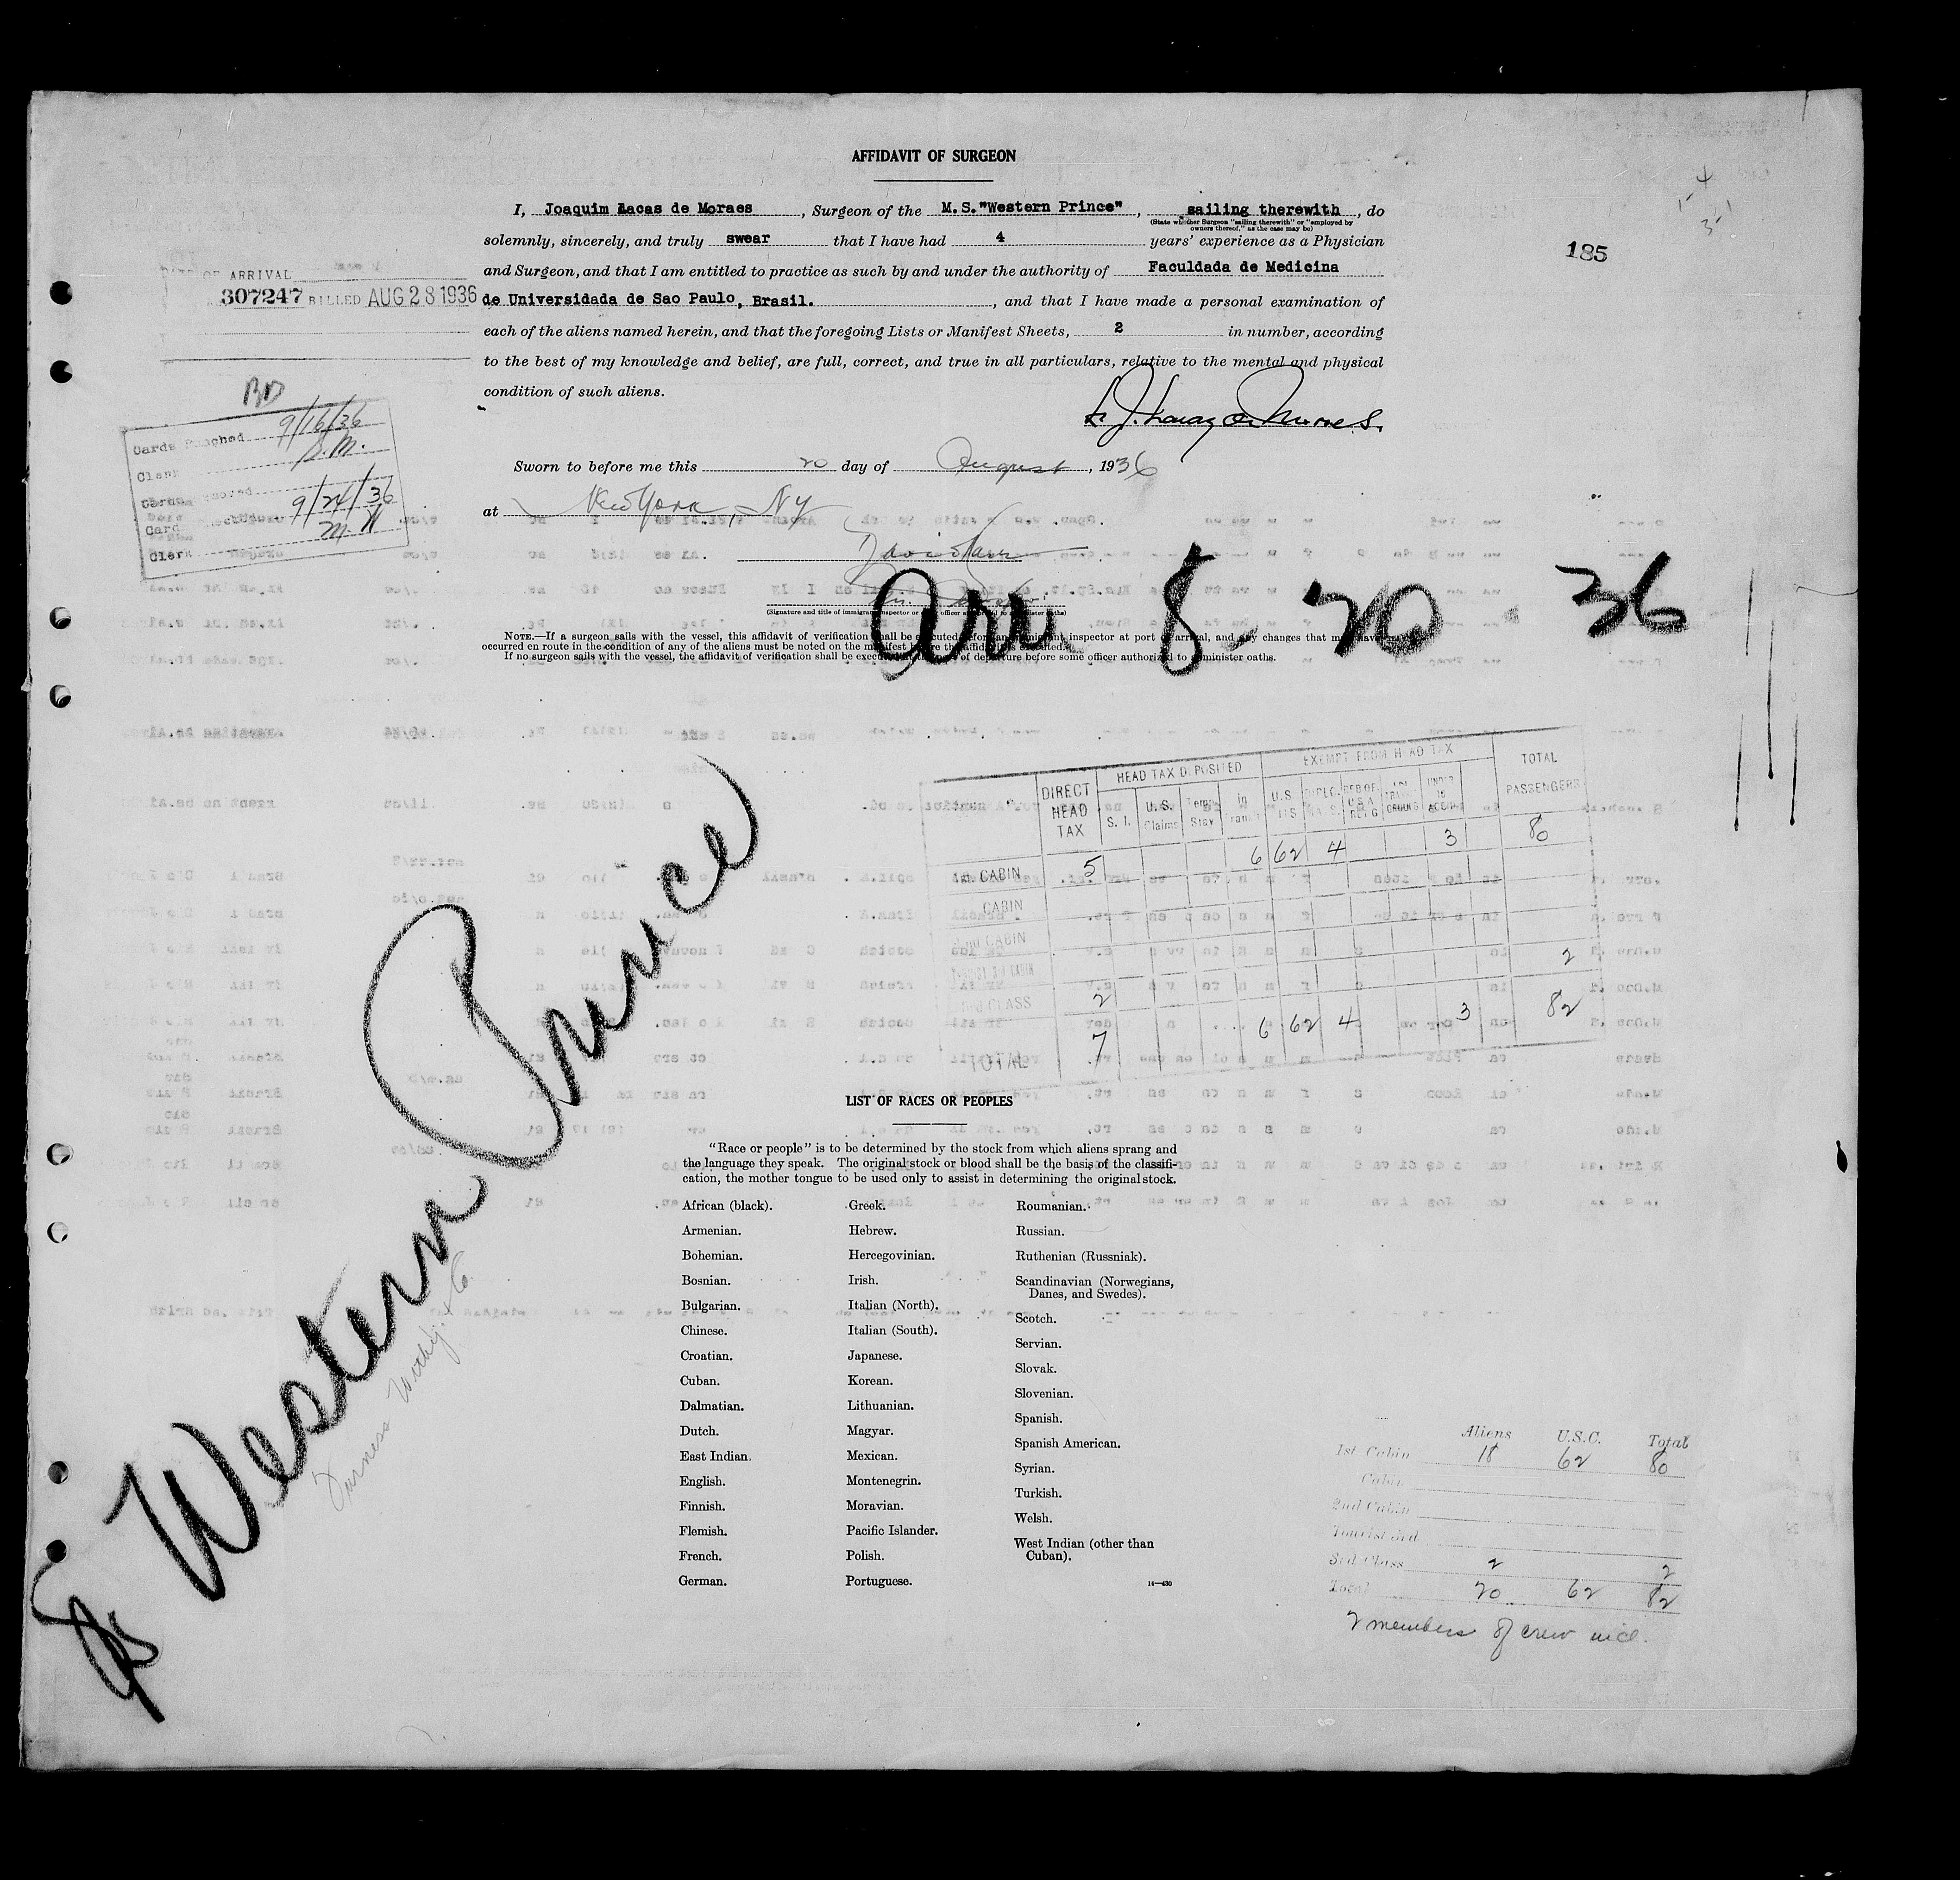 AFFIDAVIT OF SURGEON
I, Joaquim Lacas de Moraes, Surgeon of the M.S."Western Prince", sailing therewith, do
(State whether Surgeon "sailing therewith" or "employed by
owners thereof," as the case may be)
solemnly, sincerely, and truly swear that I have had 4 years' experience as a Physician
and Surgeon, and that I am entitled to practice as such by and under the authority of Faculdada de Medicina
de Universidada de Sao Paulo, Brasil. , and that I have made a personal examination of
each of the aliens named herein, and that the foregoing Lists or Manifest Sheets, 2 in number, according
to the best of my knowledge and belief, are full, correct, and true in all particulars, relative to the mental and physical
condition of such aliens.
185
DATE OF ARRIVAL
307247 BILLED AUG 28 1936
BD
Cards Punched 9/16/36
Clerk S.M.
9/24/36
Card
Clerk M.H
Sworn to before me this 20 day of August, 1936
at New York, NY
Arr 8-20-36
(Signature and title of immigrant inspector or officer authorized to administer oaths)
NOTE.—If a surgeon sails with the vessel, this affidavit of verification shall be executed before an immigrant inspector at port of arrival, and any changes that may have
occurred en route in the condition of any of the aliens must be noted on the manifest before the affidavit is executed.
If no surgeon sails with the vessel, the affidavit of verification shall be executed at the port of departure before some officer authorized to administer oaths.
DIRECT HEAD TAX
HEAD TAX DEPOSITED
EXEMPT FROM HEAD TAX
TOTAL PASSENGERS
S. I.
U.S. Claims
Temp. Stay
In Transit
1st CABIN 5 6 62 4 3 80
CABIN
2nd CABIN
TOURIST 3rd CABIN
3rd CLASS 2 2
TOTAL 7 6 62 4 3 82
SS Western Prince
Furness Withy & Co
LIST OF RACES OR PEOPLES
"Race or people" is to be determined by the stock from which aliens sprang and
the language they speak. The original stock or blood shall be the basis of the classifi-
cation, the mother tongue to be used only to assist in determining the original stock.
African (black).
Armenian.
Bohemian.
Bosnian.
Bulgarian.
Chinese.
Croatian.
Cuban.
Dalmatian.
Dutch.
East Indian.
English.
Finnish.
Flemish.
French.
German.
Greek.
Hebrew.
Hercegovinian.
Irish.
Italian (North).
Italian (South).
Japanese.
Korean.
Lithuanian.
Magyar.
Mexican.
Montenegrin.
Moravian.
Pacific Islander.
Polish.
Portuguese.
Roumanian.
Russian.
Ruthenian (Russniak).
Scandinavian (Norwegians,
Danes, and Swedes).
Scotch.
Servian.
Slovak.
Slovenian.
Spanish.
Spanish American.
Syrian.
Turkish.
Welsh.
West Indian (other than
Cuban).
14—430
Aliens U.S.C. Total
1st Cabin 18 62 80
Cabin
2nd Cabin
Tourist 3rd
3rd Class 2 2
Total 20 62 82
2 members of crew incl.